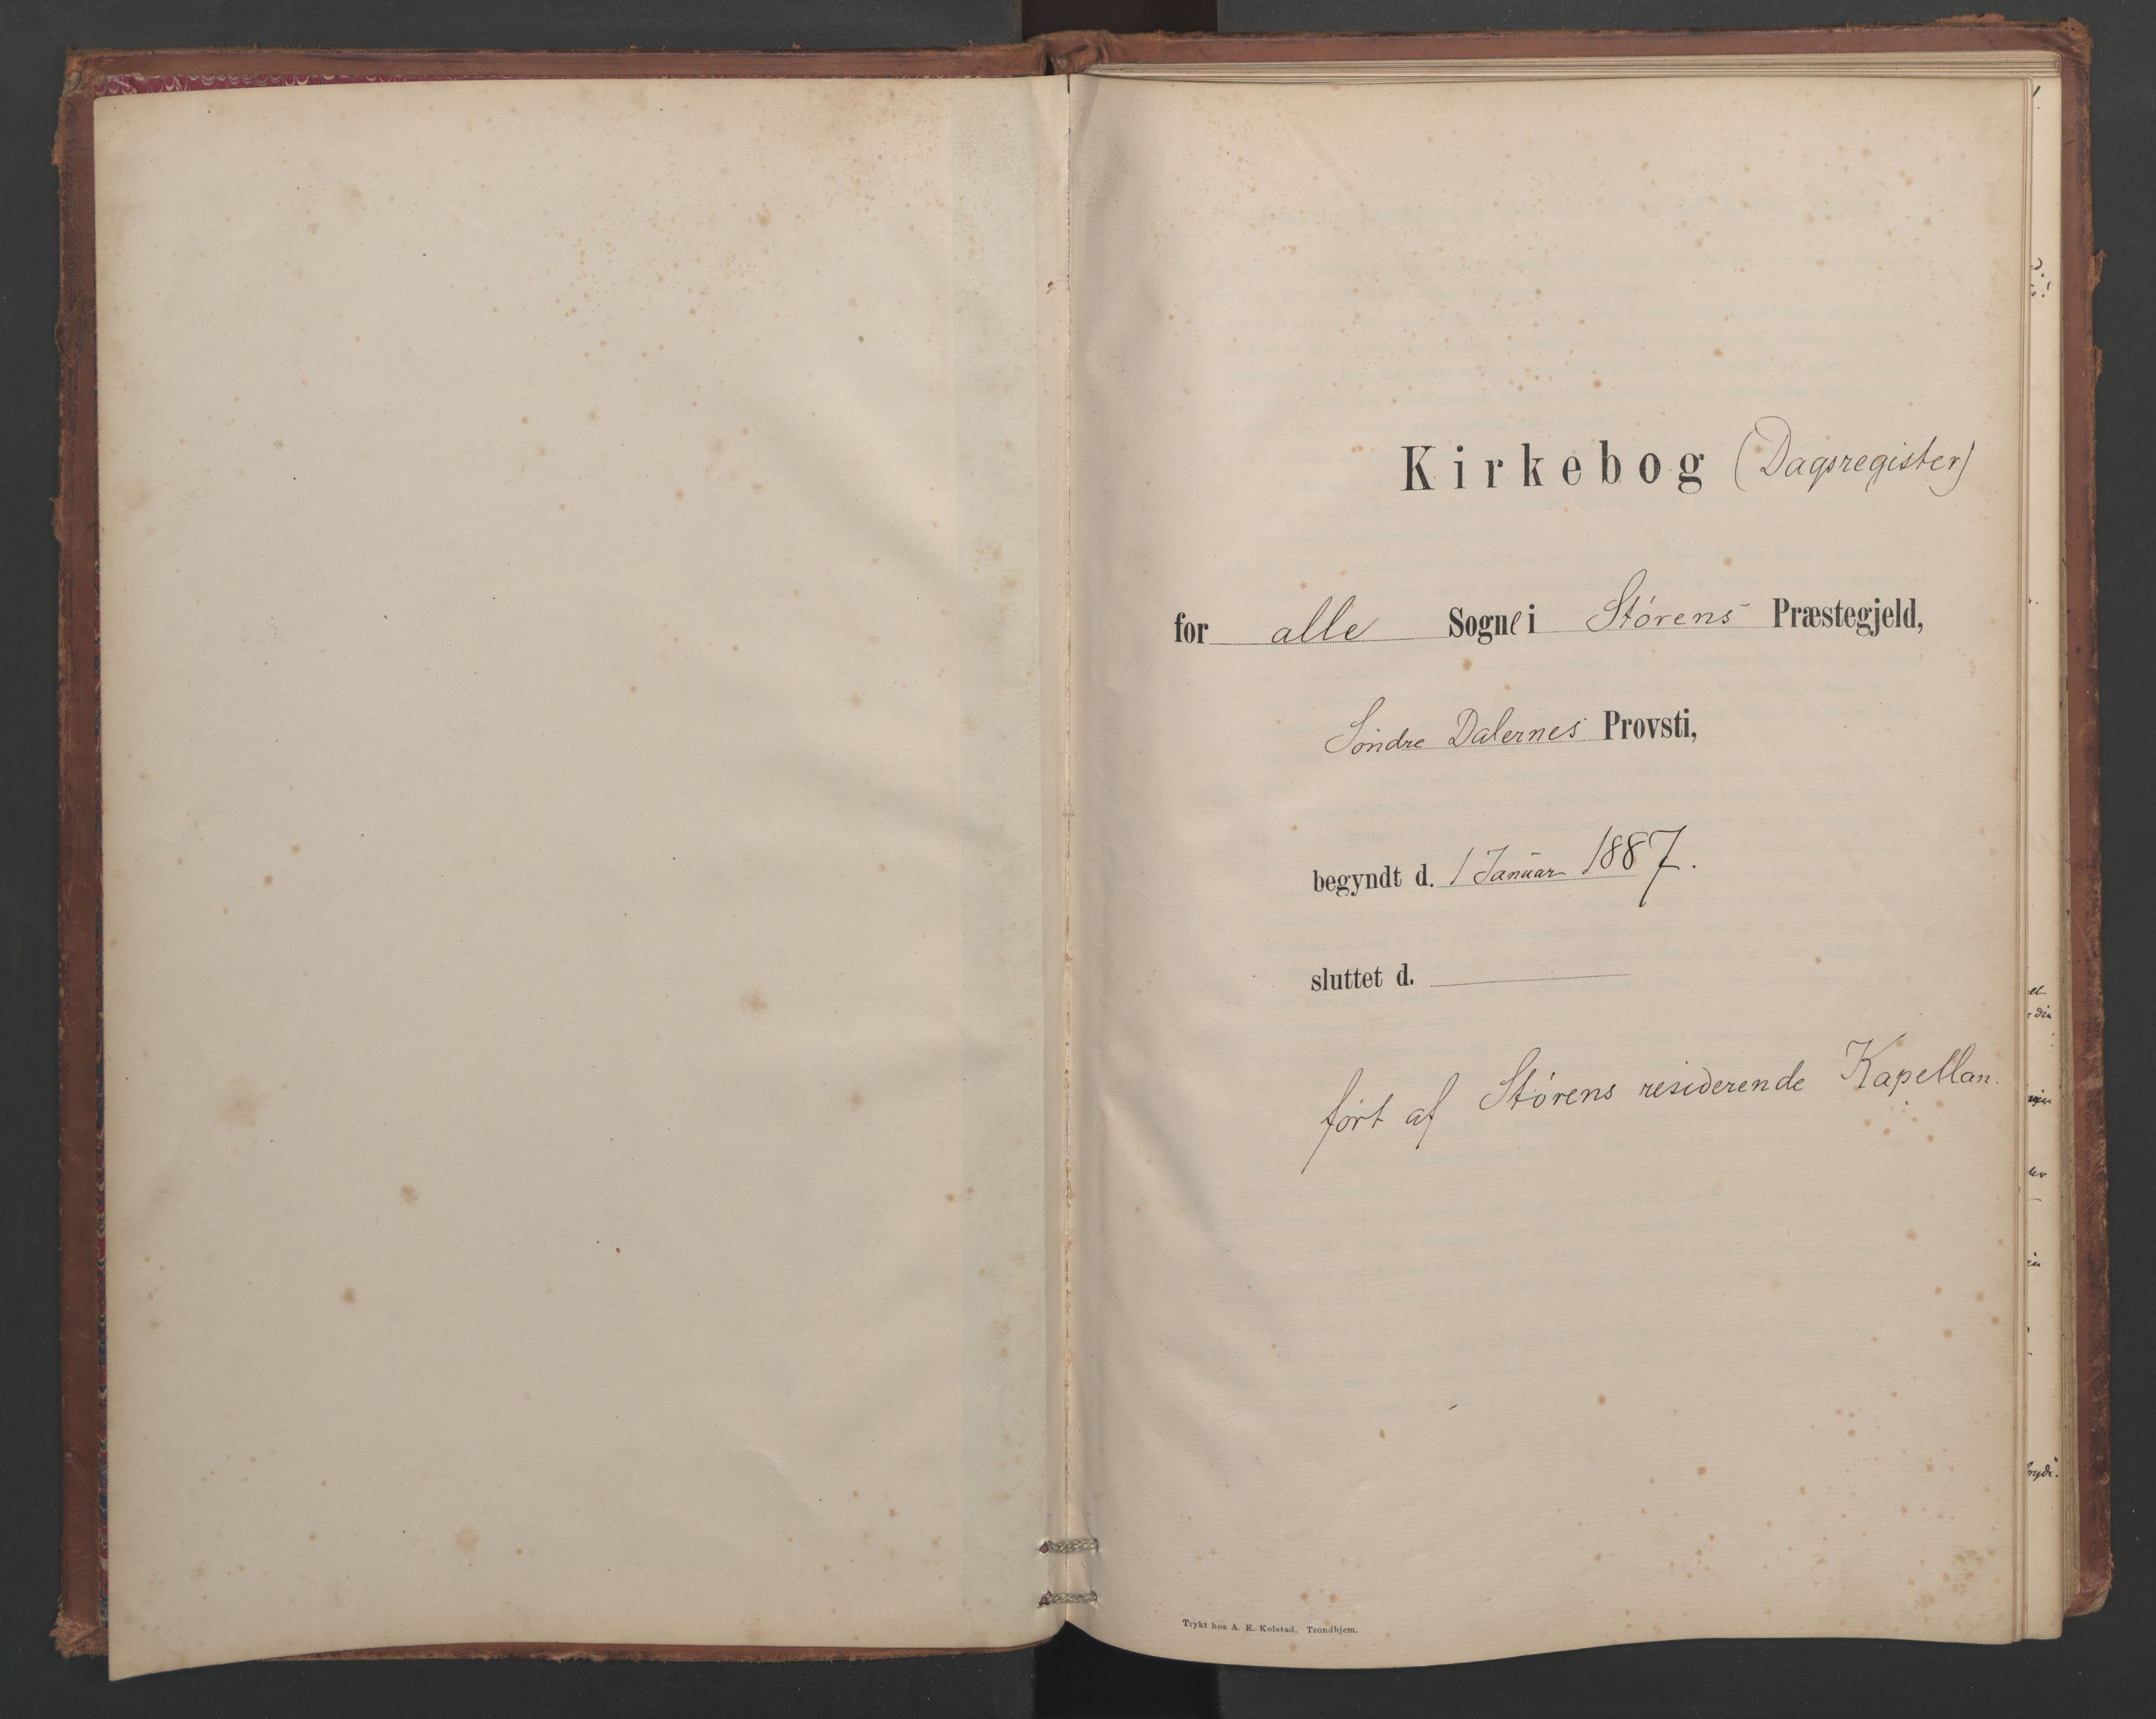 Kirkebog (Dagsregister)
for alle Sogne i Störens Præstegjeld,
Söndre Dalernes Provsti,
begyndt d. 1 Januar 1887.
sluttet d.
fört af Störens residerende Kapellan.
Trykt hos A. E. Kolstad. Trondhjem.